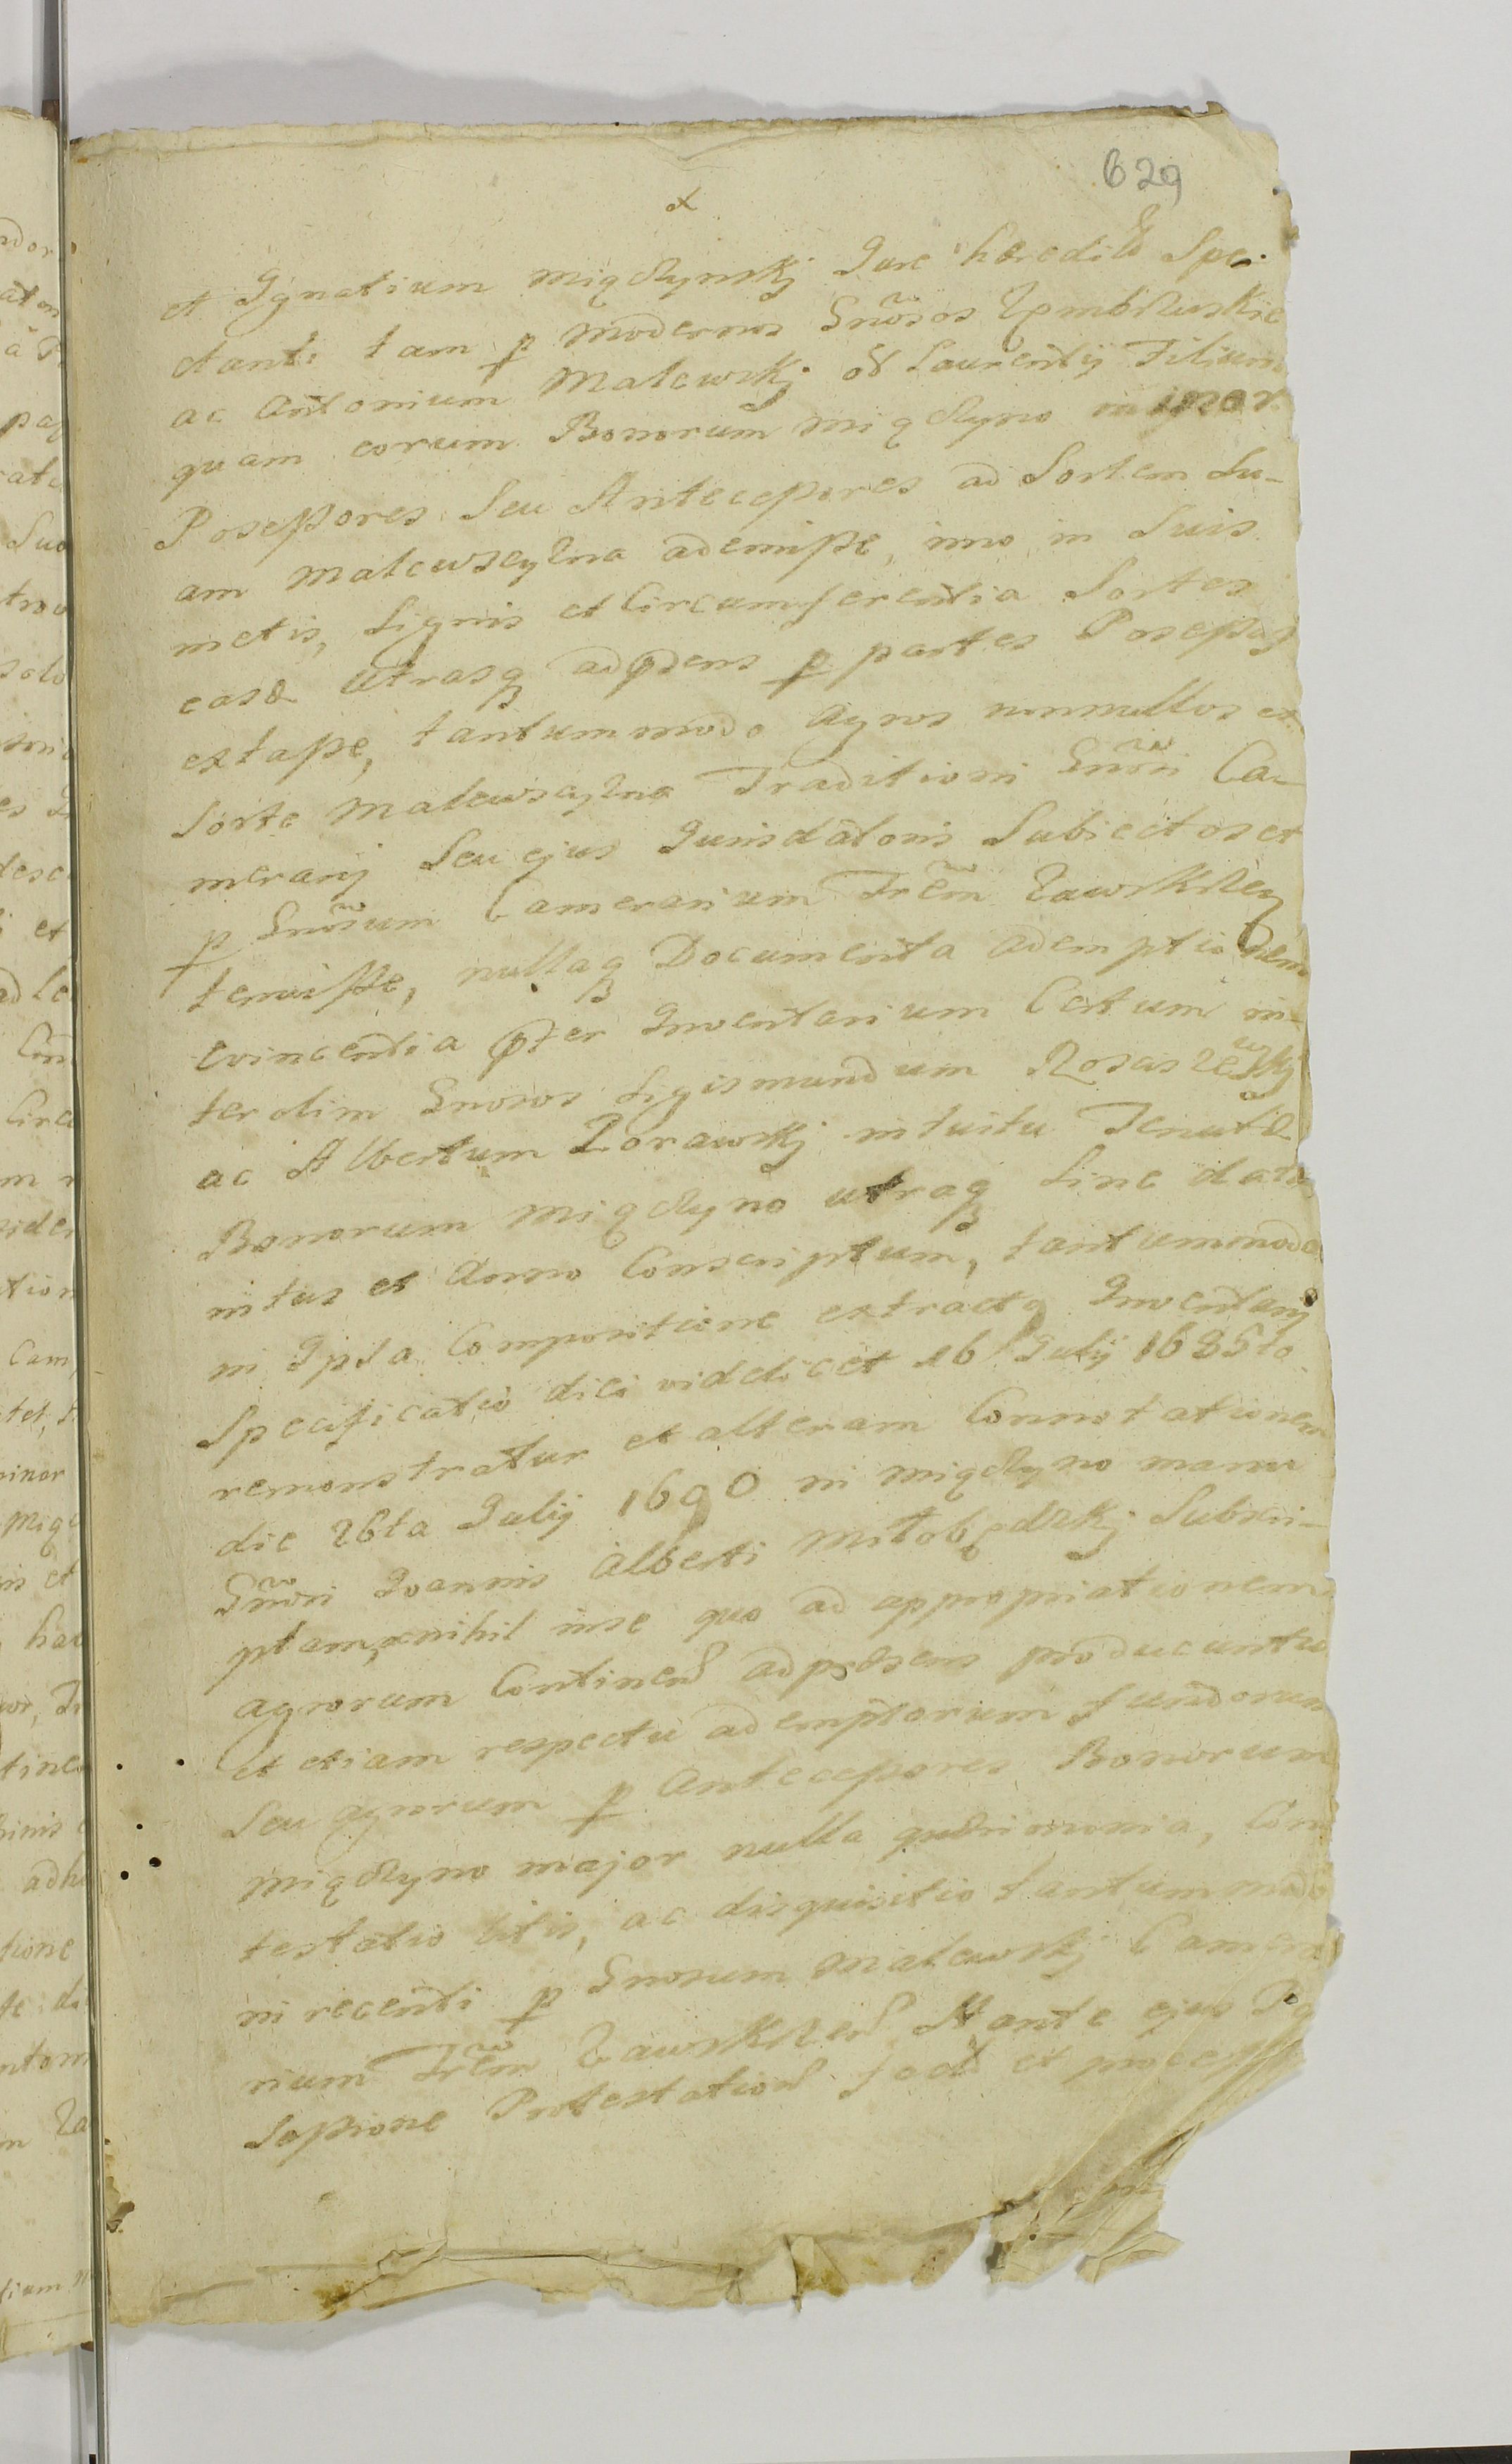 629
et Ignatium Miączynskj Jure hæredit̃o Spe-
ctanti tam p̱ modernos Gn̄osos Zembrzuskie
ac Antonium Malewskj oĩ Laurentij Filium
quam eorum Bonorum Miączyno minor
Posessores Seu Antecessores ad Sortem Su-
am Malewsczyzna ademisse, imo in Suis
metis, Signis et Circumferentia Sortes
easd̃ utrasq̃ adpñs p̱ partes Posessas
extasse, tantummodo Agros nonnullos ex
Sorte Malewsczyzna Traditioni Gn̄osi Ca-
merarij Seu ejus Jurisdãtoris Subiectos et
p̱ Gn̄osum Camerarium Trr̃em Zawskrzeñ
tenuisse, nullaq̃ Documenta ademptionem
evincentia p̃ter Inventarium Certum in-
ter olim Gnosos Sigismundum
ac Albertum Zorawskj intuitu Tenutæ
Bonorum Miączyno utraq̃ Sine data
intus et Anno Conscriptum, tantummodo
in Ipsa Compositione extractq̃ Inventarij
Specificatio diei videlicet 16 Julij 1685to
remonstratur et alteram Connotationem
die 26ta Julij 1690 in Miączyno manu
Gn̄osi Joannis Alberti Miłobędzkj Subscri-
ptam, nihil inse quo ad appropriationem
agrorum Continen̄ adpræsens producuntur
et etiam respectu ademptorum fundorum
Seu agrorum p̱ Antecessores Bonorum
Miączyno major nulla quærimonia, Con
testatio litis, ac disquisitio tantummodo
in recenti p̱ Gnosum Malewskj Camera
rium Trr̃em Zawskrzen̄ ante ejus Po
Sessione Protestation̄ fact̃ et process